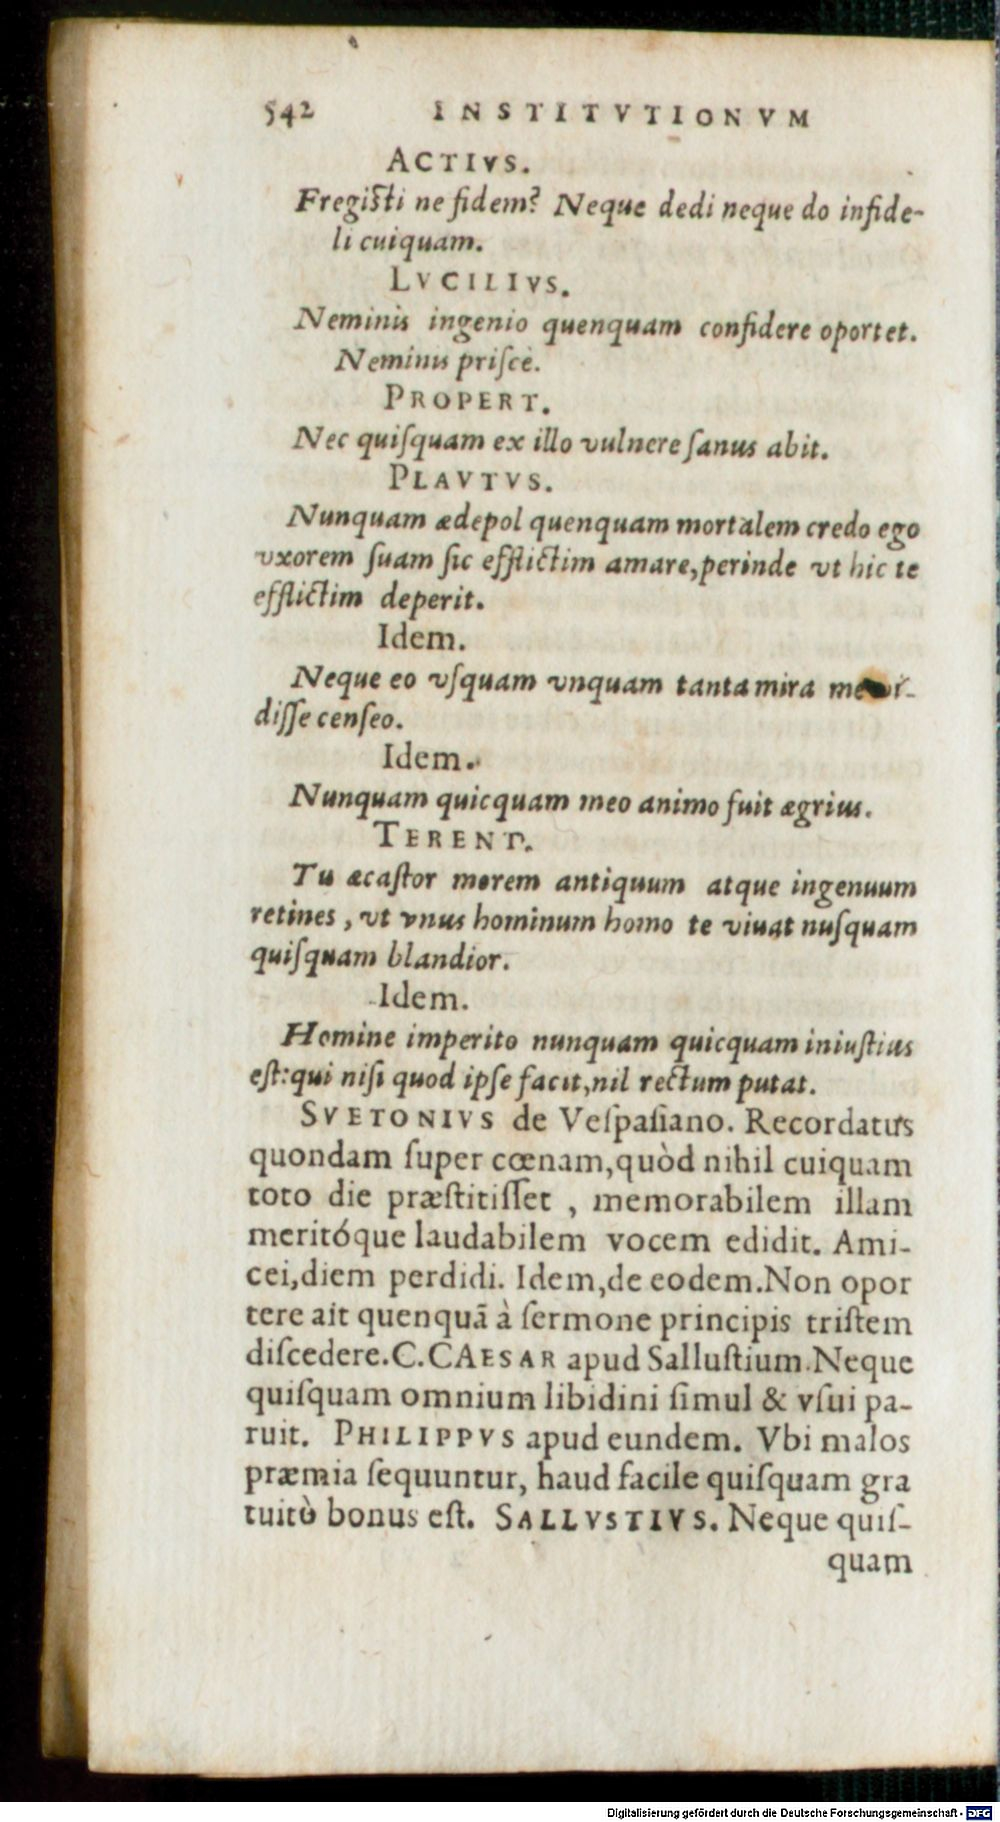 542 INSTITVTIONVM
ACTIVS.
Fregisti ne fidem? Neque dedi neque do infide-
li cuiquam.
LVCILIVS.
Neminis ingenio quenquam confidere oportet.
Neminis priscè.
PROPERT.
Nec quiſquam ex illo vulnere ſanus abit.
PLAVTVS.
Nunquam ædepol quenquam mortalem credo ego
vxorem ſuam ſic efflictim amare, perinde vt hic te
efflictim deperit.
Idem.
Neque eo vſquam vnquam tanta mira
diſſe cenſeo.
Idem.
Nunquam quicquam meo animo fuit ægrius.
TERENT.
Tu æcaſtor morem antiquum atque ingenuum
retines, vt vnus hominum homo te viuat nuſquam
quiſquam blandior.
Idem.
Homine imperito nunquam quicquam iniuſtius
eſt: qui niſi quod ipſe facit, nil rectum putat.
SVETONIVS de Veſpaſiano. Recordatus
quondam ſuper cœnam, quòd nihil cuiquam
toto die præſtitiſſet, memorabilem illam
meritóque laudabilem vocem edidit. Ami-
cei, diem perdidi. Idem, de eodem. Non opor
tere ait quenquã à ſermone principis triſtem
diſcedere. C. CAESAR apud Salluſtium. Neque
quiſquam omnium libidini ſimul & vſui pa-
ruit. PHILIPPVS apud eundem. Vbi malos
præmia ſequuntur, haud facile quiſquam gra
tuitò bonus eſt. SALLVSTIVS. Neque quiſ-
quam
Digitalisierung gefördert durch die Deutsche Forschungsgemeinschaft - DFG